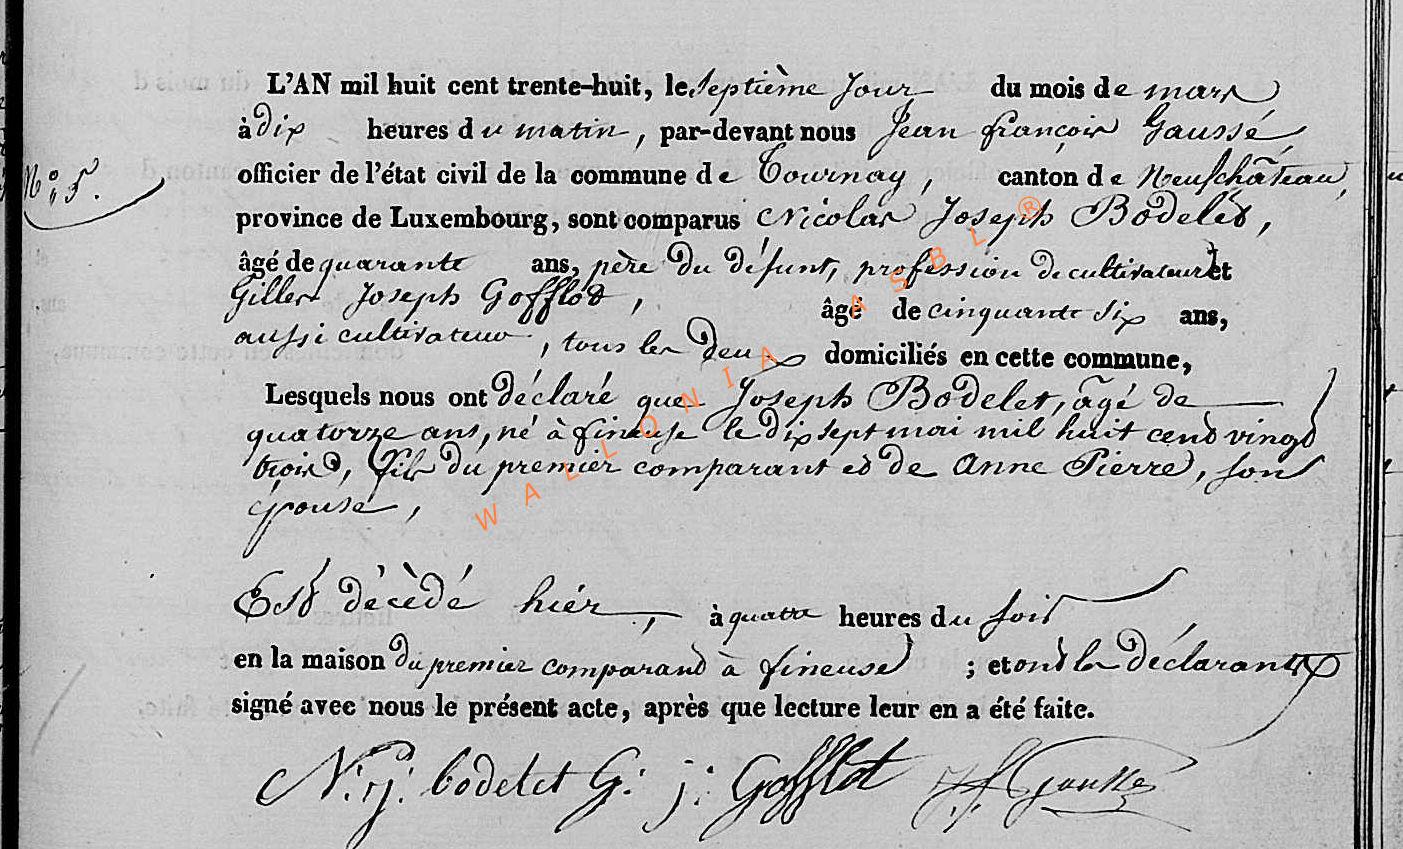 L'AN mil huit cent trente-huit, le septième jour du mois de mars
à dix heures du matin, par-devant nous Jean françois Gaussé,
officier de l'état civil de la commune de Tournay, canton de Neufchâteau,
N° 5.
province de Luxembourg, sont comparus Nicolas Joseph Bodelet,
âgé de quarante ans, père du défunt, profession de cultivateur et
Gilles Joseph Gofflot, âgé de cinquante six ans,
aussi cultivateur, tous les deux domiciliés en cette commune,
Lesquels nous ont déclaré que Joseph Bodelet, âgé de
quatorze ans, né à fineuse le dix sept mai mil huit cent vingt
trois, fils du premier comparant et de Anne Pierre, son
épouse,
Est décédé hiér, à quatre heures du soir
en la maison du premier comparant à fineuse ; et ont les déclarants
signé avec nous le présent acte, après que lecture leur en a été faite.
N: j: bodelet G: j: Gofflot J f Gaussé
WALLONIA ASBL ®